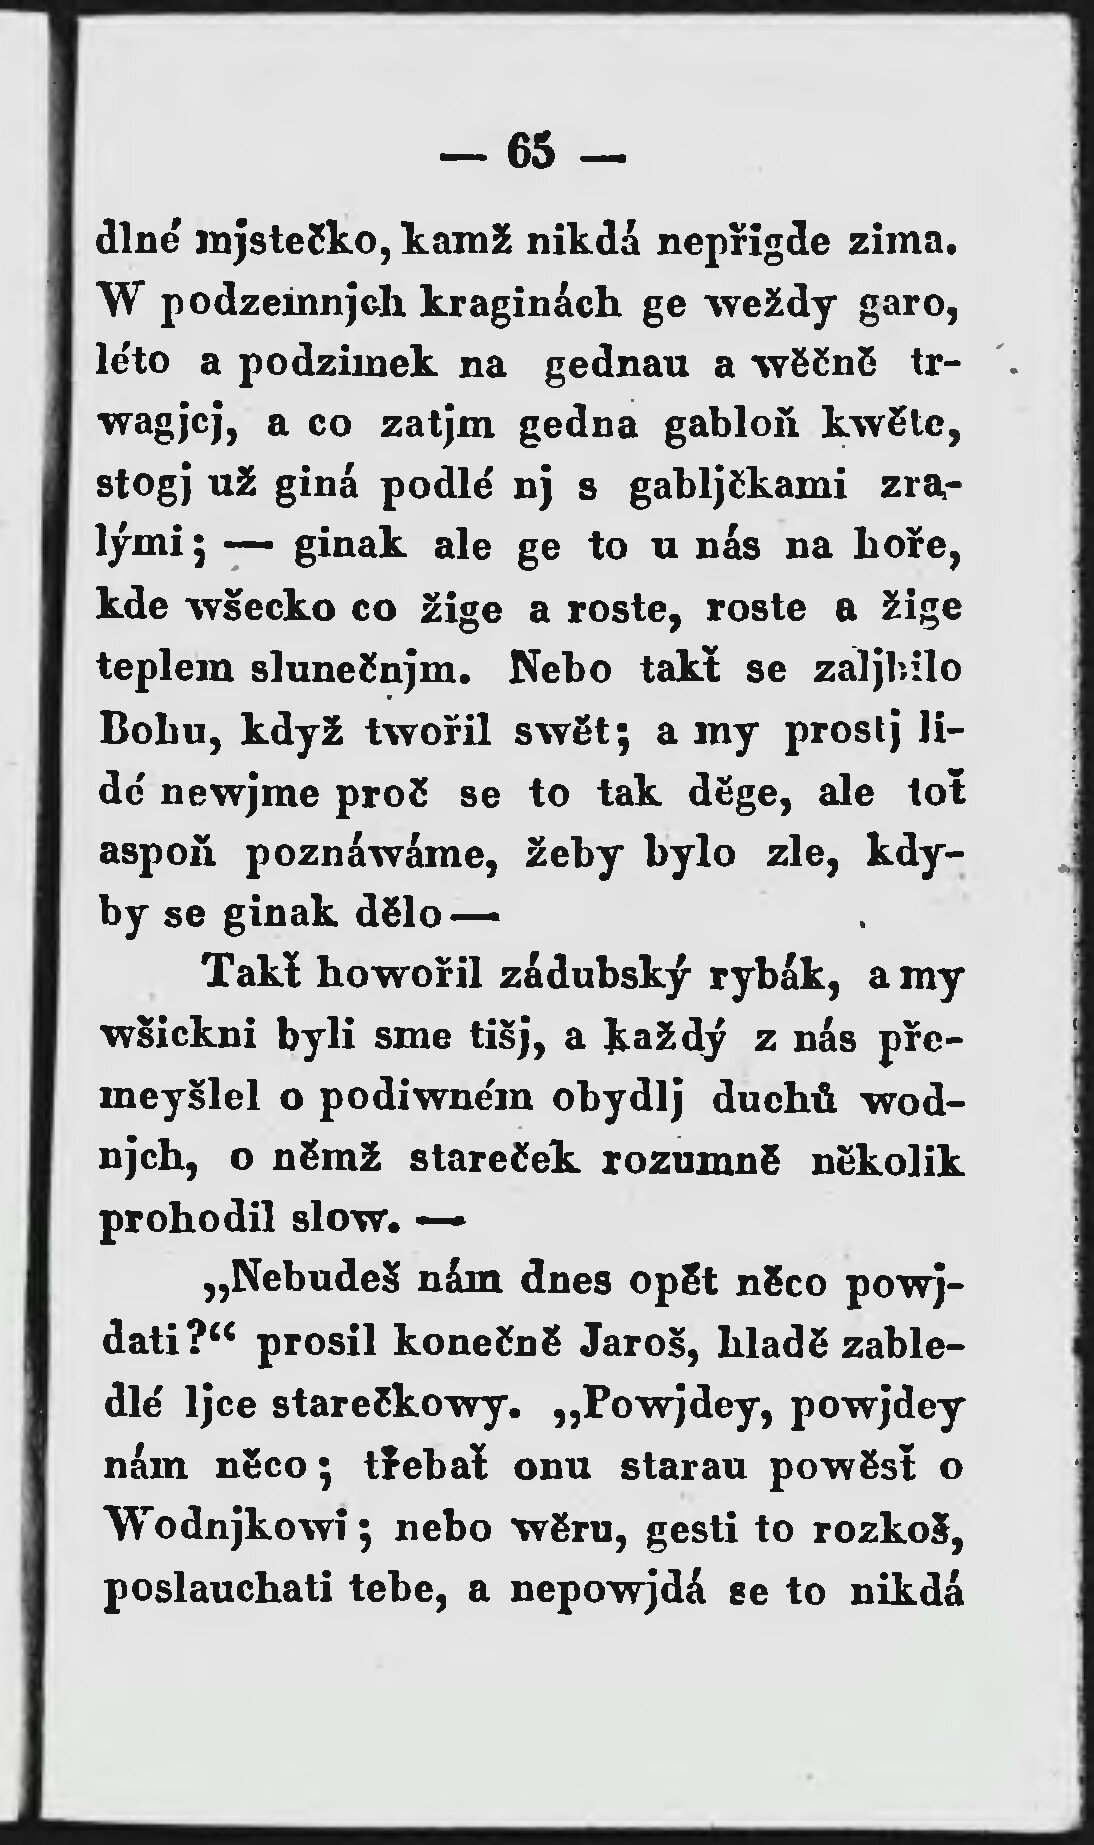 — 65 —
dlné mjstečko, kamž nikdá nepřigde zima.
W podzemnjch kraginách ge weždy garo,
léto a podzimek na gednau a wěčně tr-
wagjcj, a co zatjm gedna gabloň kwěte,
stogj už giná podlé nj s gabljčkami zra-
lými; — ginak ale ge to u nás na hoře,
kde wšecko co žige a roste, roste a žige
teplem slunečnjm. Nebo takť se zaljbilo
Bohu, když twořil swět; a my prostj li-
dé newjme proč se to tak děge, ale toť
aspoň poznáwáme, žeby bylo zle, kdy-
by se ginak dělo —
Takť howořil zádubský rybák, a my
wšickni byli sme tišj, a každý z nás pře-
meyšlel o podiwném obydlj duchů wod-
njch, o němž stareček rozumně několik
prohodil slow. —
„Nebudeš nám dnes opět něco powj-
dati?“ prosil konečně Jaroš, hladě zable-
dlé ljce starečkowy. „Powjdey, powjdey
nám něco; třebať onu starau powěsť o
Wodnjkowi; nebo wěru, gesti to rozkoš,
poslauchati tebe, a nepowjdá se to nikdá